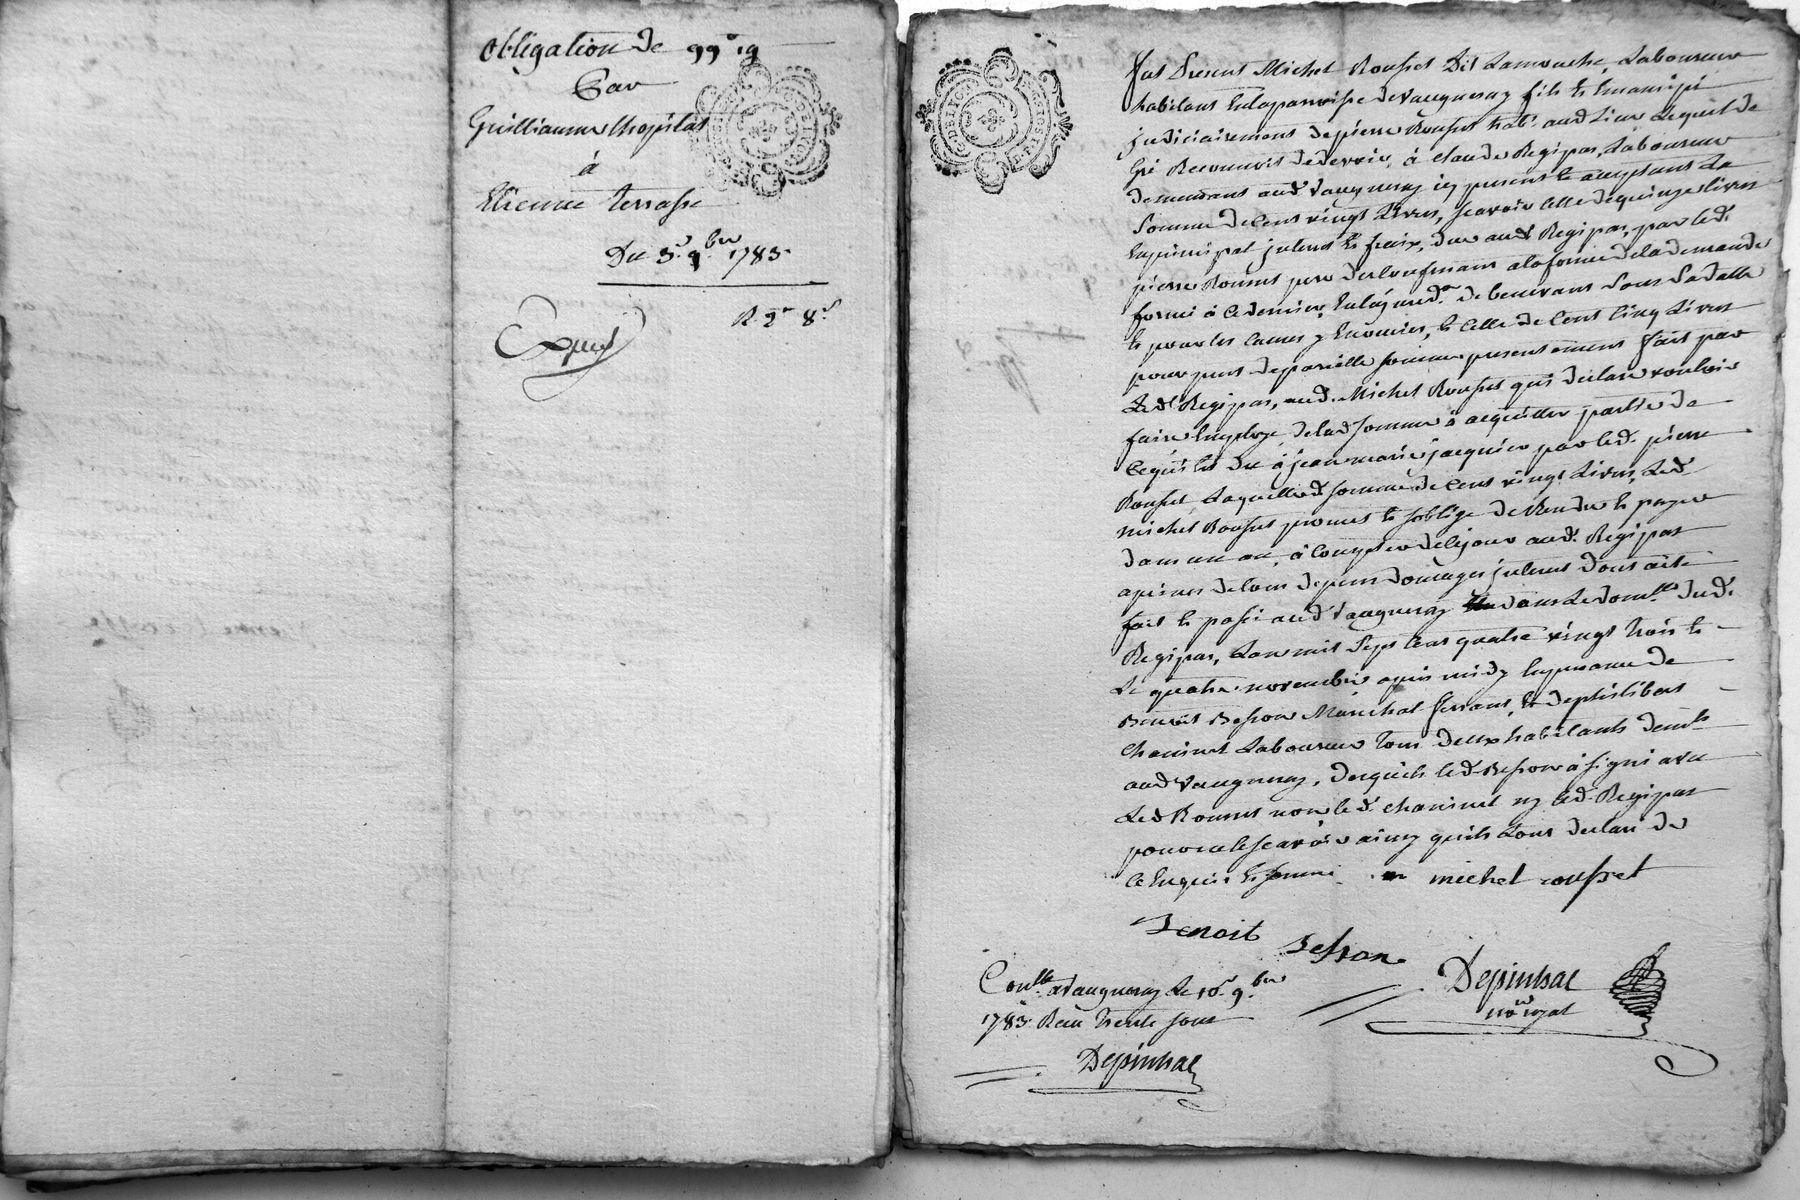 Obligation de 99ᵗ 19
Par
Guilliaume Chopilat
à
Etienne Terrasse
Du 3.ᵉ 9.ᵇʳᵉ 1783.
R. 2ᵗ 8ˢ
Expᵉᵈ
fut Present Michel Rousset Dit Lamouche, Laboureur
habitant En la parroisse de Vaugneray fils Et Emancipé
judiciairement de pierre Rousset habᵗ aud Lieu Lequel de
Gré Reconnoit de devoir à Claude Regipas, Laboureur
demeurant aud Vaugneray icy present Et acceptant La
Somme de Cent vingt Livres, scavoir Celle de quinze Livres
En principal interets Et fraix, due aud Regipas, par led.
pierre Rousset pere a la forme de la demande
formé à Ce dernier,
Et pour les Causes y Enoncées, Et Celle de Cent Cinq Livres
pour pret de pareille somme presentement fait par
Led Regipas, aud. Michel Rousset qui declare vouloir
faire Employ de lad somme à acquitter partie de
Ce qui Est du à jean marie jacquier par led. pierre
Rousset Laquelle d somme de Cent vingt Livres, Led
michel Rousset promet Et soblige de Rendre Et payer
dans un an, à Compter de Ce jour aud. Regipas
a peines de tous depens domages interets Dont acte
fait Et passé aud Vaugneray dans Le domˡˡᵉ dud.
Regipas, Lan mil Sept Cent quatre vingt trois Et
Le quatre novembre apres midy En presence de
Benoit Besson Marechal ferrant, Et de
Chaninet Laboureur tous deux habitants
aud Vaugneray, desquels led Besson à signé avec
Led Rousset non led. Chaninet ny led. Regipas
pour ne le scavoir ainsy quils Lont declaré de
Ce Enquis Et sommé michel rousset
Benoit Besson
Depinhac
noʳᵉ royal
Conˡˡᵉ à Vaugneray Le 10.ᵉ 9.ᵇʳᵉ
1783. Reçu trente sous
Depinhac